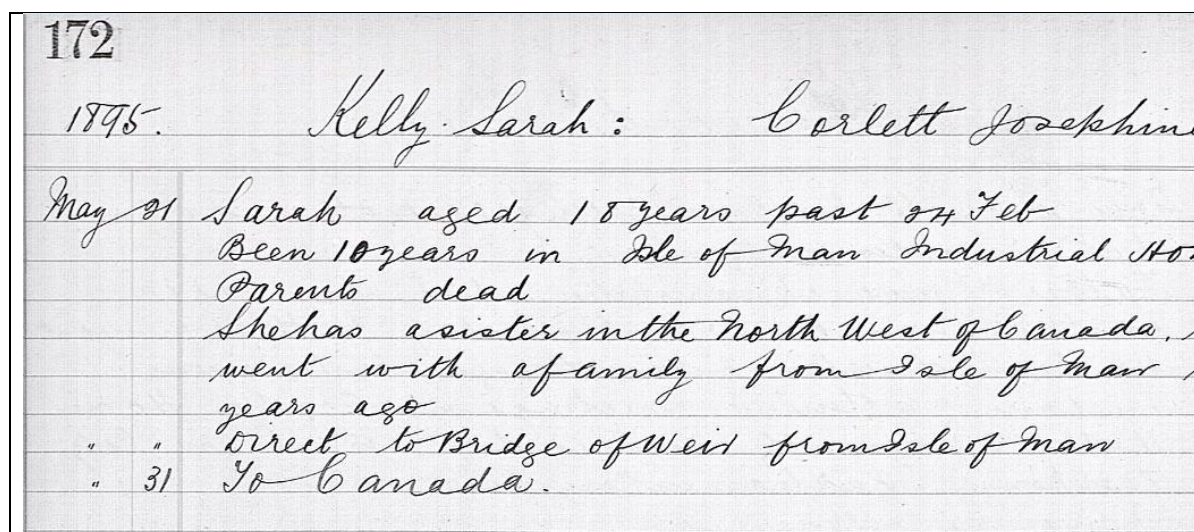 172
1895. Kelly Sarah: Corlett Josephin
May 21 Sarah aged 18 years past 24 Feb
Been 10 years in Isle of Man Industrial Ho
Parents dead
She has a sister in the North West of Canada.
went with a family from Isle of Man
years ago
" " Direct to Bridge of Weir from Isle of Man
" 31 To Canada.